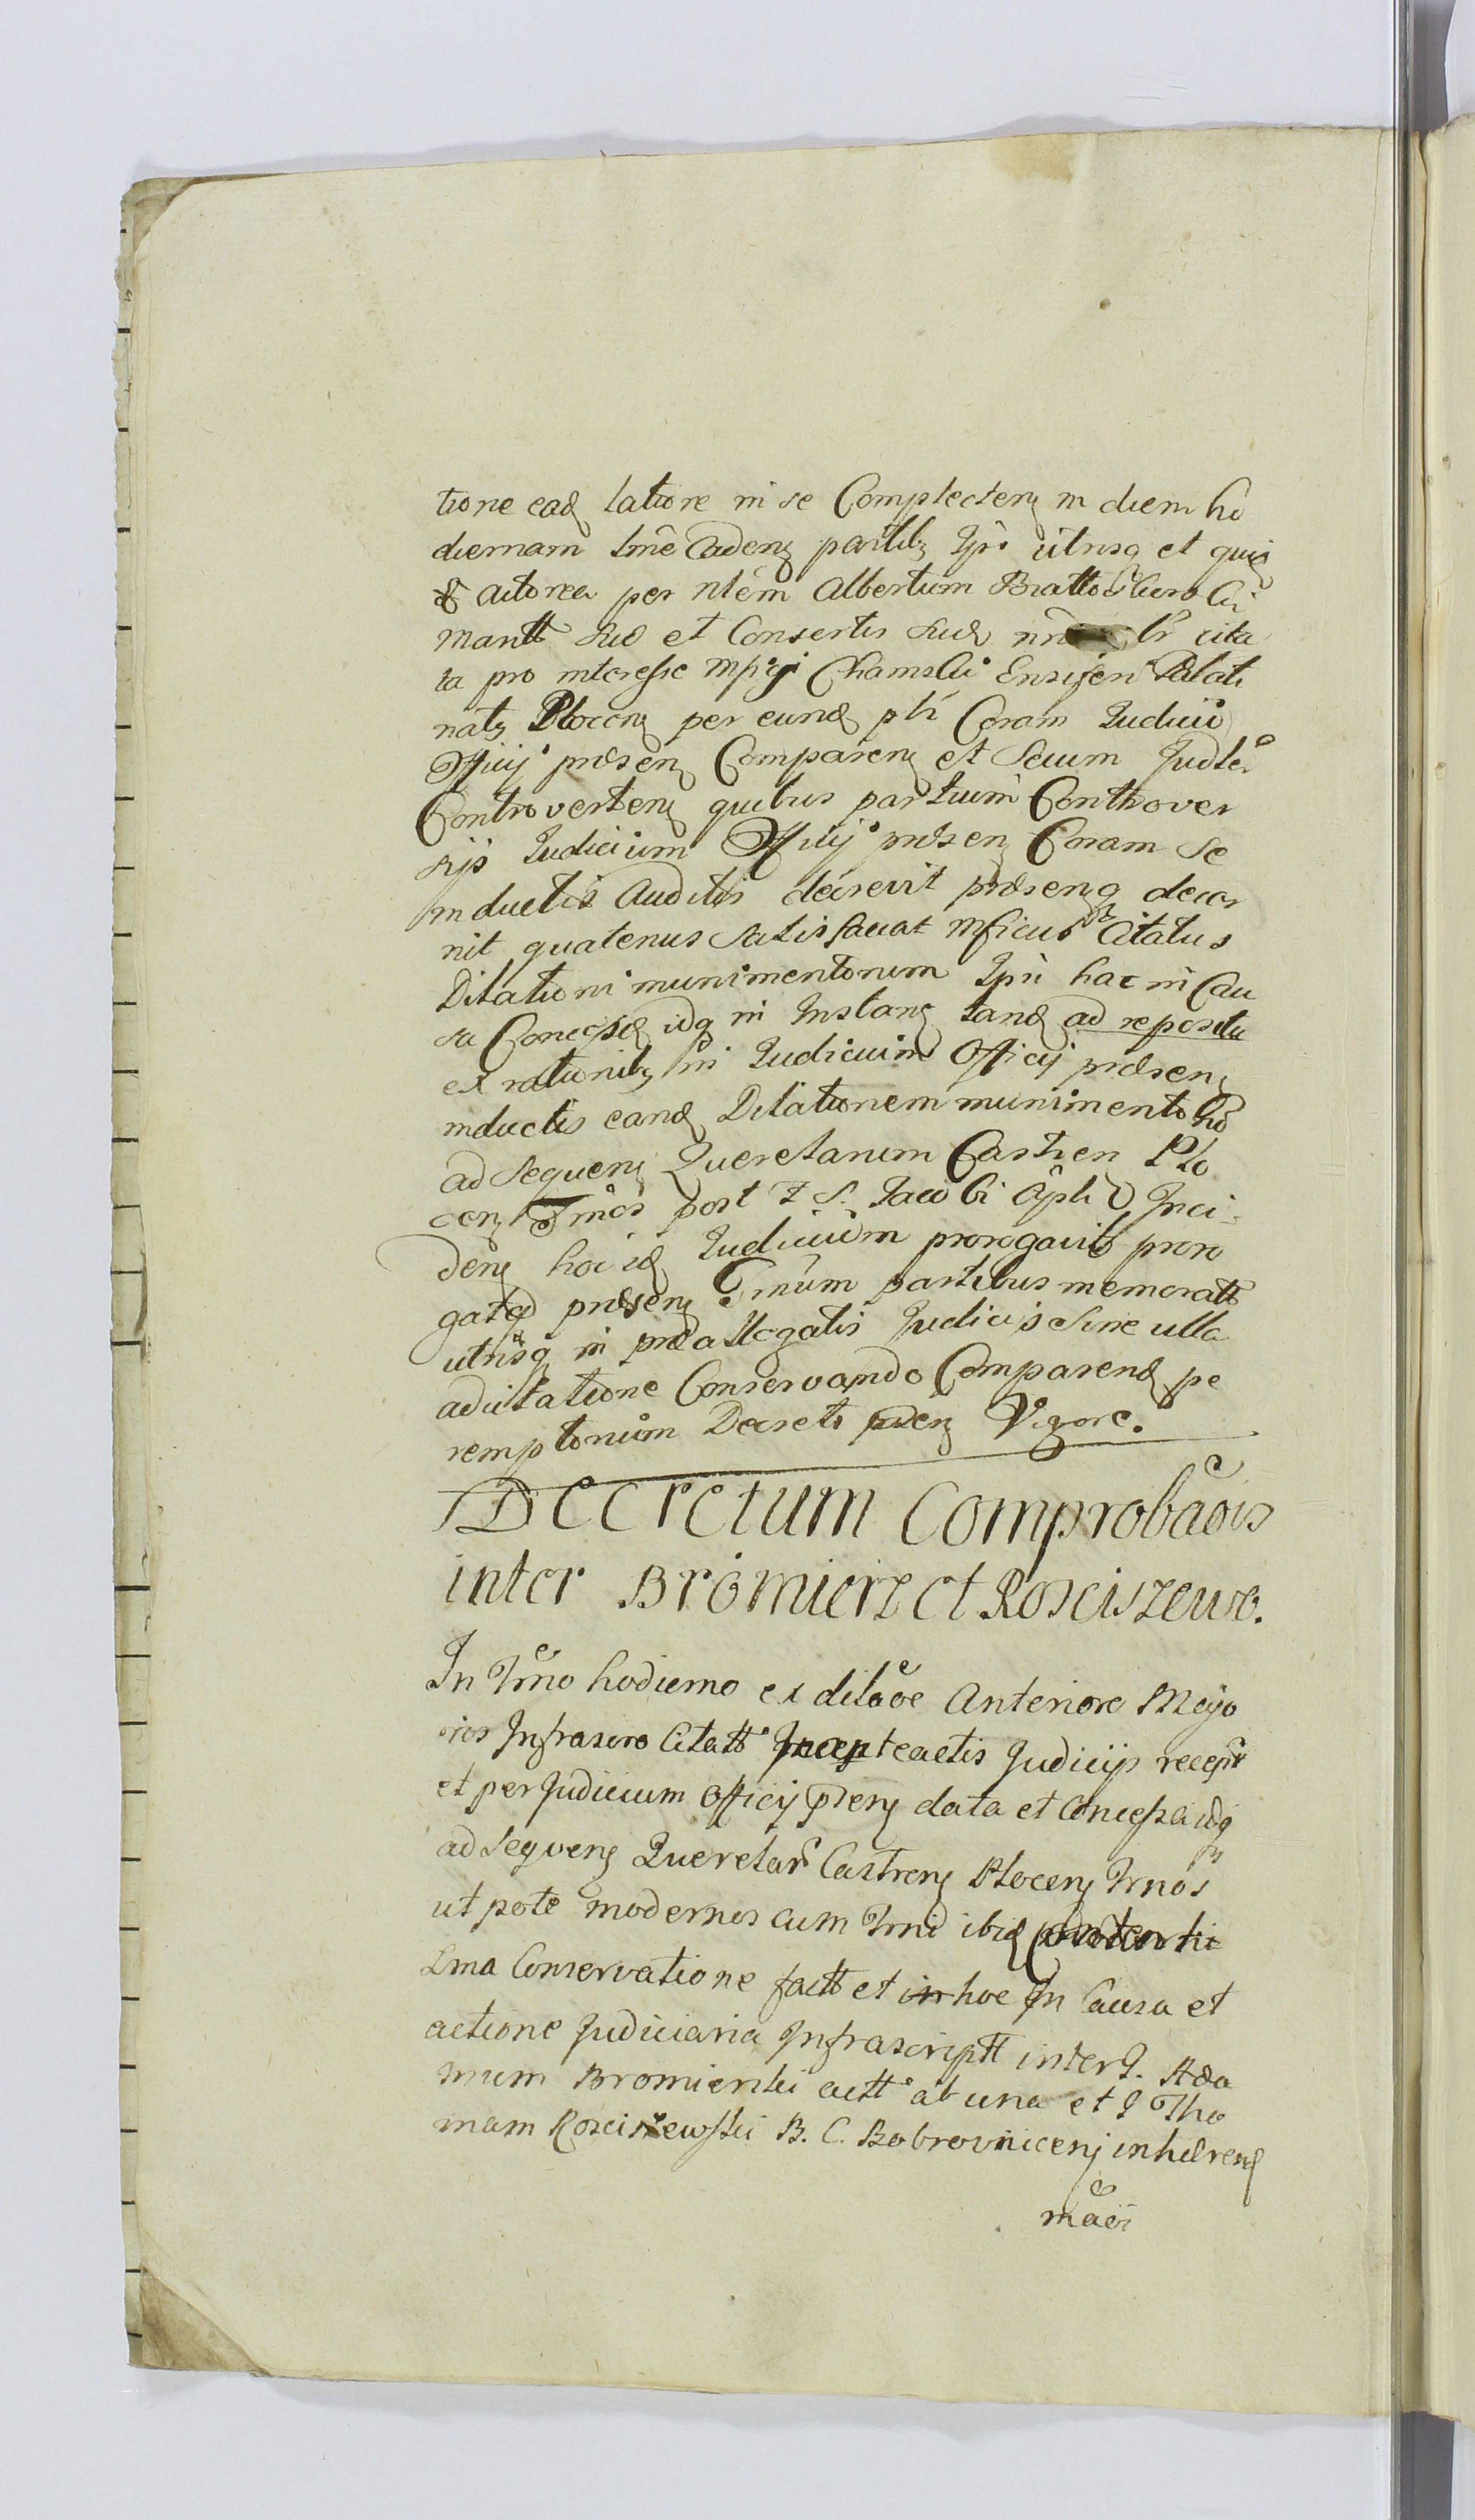 tione ead latiore in se Complecten in diem ho
diernam tme Caden partib Ipis utrisq et quid
actorea per Nlem Albertum Brattoszew
mantt suo et Consertis suis cita
ta pro interesse Mpici Chamski Ensiferi Palati
nats Plocen per eund pti Coram Judicio
Officij præsen Comparen et Secum Judler
Controverten quibus partium Controver
sijs Judicium Officij præsen Coram se
inductis Auditis decrevit præsenq decer
nit quatenus Satisfaciat Mficus Citatus
Dilationi munimentorum Ipi hac in Cau
sa Concessæ idq in Instan tand ad reposita
ex rationib in Judicium Officij præsen
inductis eand Dilationem munimento
ad sequen Querelarum Castren Plo
cen Tmos post F S. Jacobi Apli Inci
den hoc id Judicium prorogavit proro
gatq præsen Tminum partibus memoratt
utrisq in præallegatis Judicijs Sine ulla
adcitatione Conservando Comparend pe
remptorium Decreti præn Vigore.
Decretum Comprobaois
inter Bromierz et Rosciszews.
In Tmo hodierno ex dilaoe Anteriore Majo
ores Infrascro Citatt teactis Judicijs recept
et per Judicium Officij præn data et Concessa idq
ad sequen Querelar Castren Plocen Tmos
ut pote modernos cum Tmi ibid
Lma Conservatione factt et in hoc In Causa et
actione Judiciaria Infrascriptt inter G. Ada
mum Bromierski actt ab una et G Tho
mam Rosciszewski B. C. Bobrovnicen inhæren
maoi